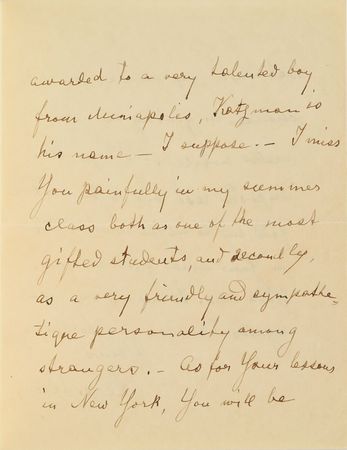 awarded to a very talented boy
from Miniapolis, Katzman is
his name – I suppose. – I miss
You painfully in my summer
class both as one of the most
gifted students, and secondly,
as a very friendly and sympathe-
tique personality among
strangers. – As for Your lessons
in New York, You will be